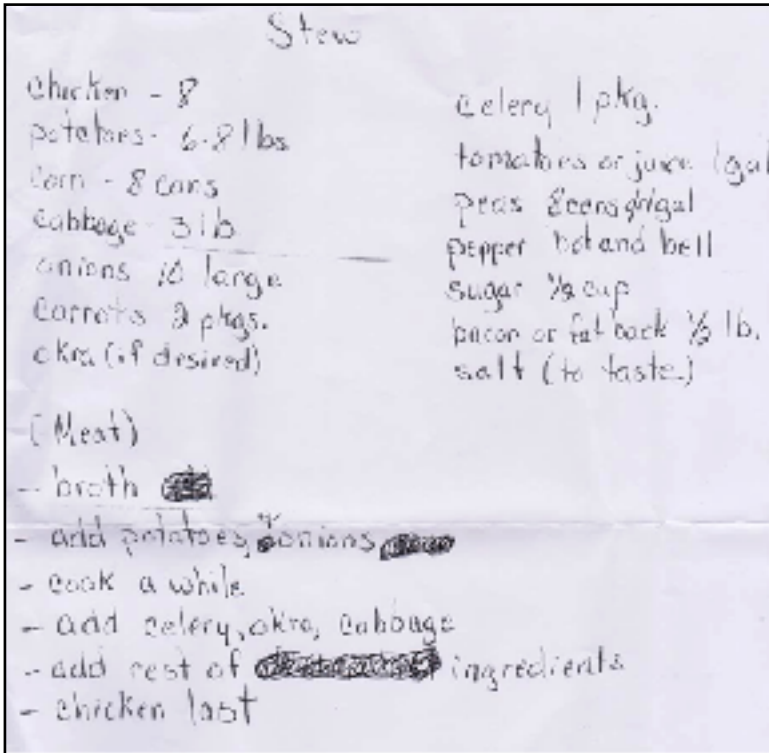 Stew
chicken - 8
potatoes - 6-8 lbs
corn - 8 cans
cabbage - 3 lb
onions 10 large
carrots 2 pkgs.
okra (if desired)
celery 1 pkg.
tomatoes or juice 1 gal
peas 8 cans 1 gal
pepper hot and bell
sugar 1/2 cup
bacon or fat back 1/2 lb.
salt (to taste)
(Meat)
- broth
- add potatoes, & onions
- cook a while
- add celery, okra, cabbage
- add rest of ingredients
- chicken last